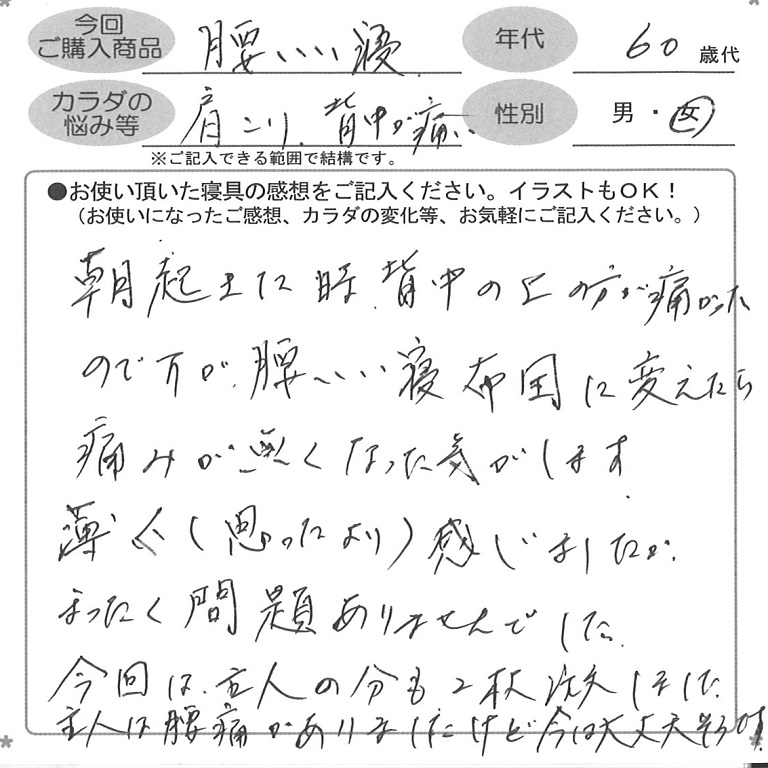 今回
ご購入商品 腰いいい寝 年代 60 歳代
カラダの
悩み等 肩こり、背中が痛い 性別 男・女
※ご記入できる範囲で結構です。
●お使い頂いた寝具の感想をご記入ください。イラストもOK！
（お使いになったご感想、カラダの変化等、お気軽にご記入ください。）
朝起きた時、背中の上の方が痛かった
のですが、腰いいい寝布団に変えたら
痛みが無くなった気がします
薄く（思ったより）感じましたが、
まったく問題ありませんでした。
今回は、主人の分も2枚注文しました。
主人は腰痛がありましたけど今は大丈夫そうです!